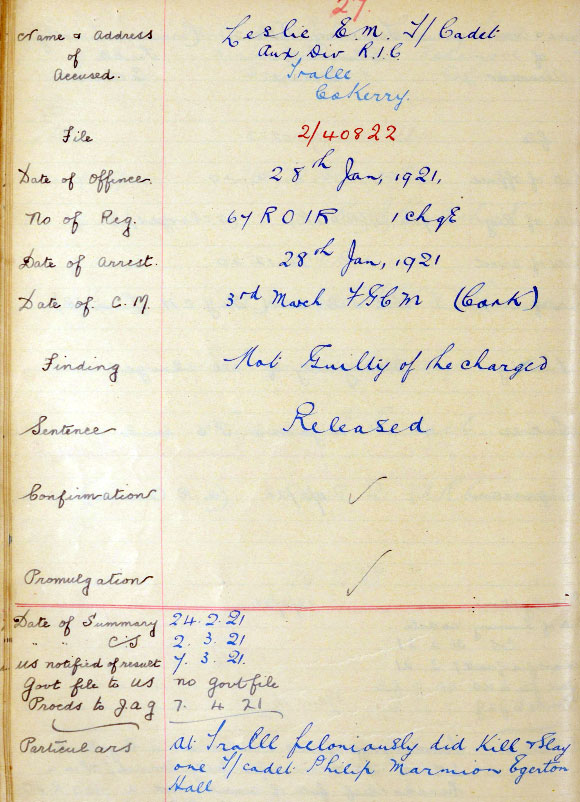 27.
Name & Address of Accused.
Leslie E.M. T/Cadet
Aux Div R.I.C.
Tralle
Co Kerry.
File 2/40822
Date of Offence. 28th Jan, 1921,
No of Reg. 67 R O I R 1 chgE
Date of Arrest. 28th Jan, 1921
Date of C.M. 3rd March FGCM (Cork)
Finding Not Guilty of the charged
Sentence Released
Confirmation ✓
Promulgation ✓
Date of Summary 24.2.21
C/S 2.3.21
US notified of result 7.3.21.
Govt file to US no govt file
Proceds to Jag 7.4 21
Particulars At Tralll feloniously did Kill & Slay
one T/cadet Philip Marmion Egerton
Hall